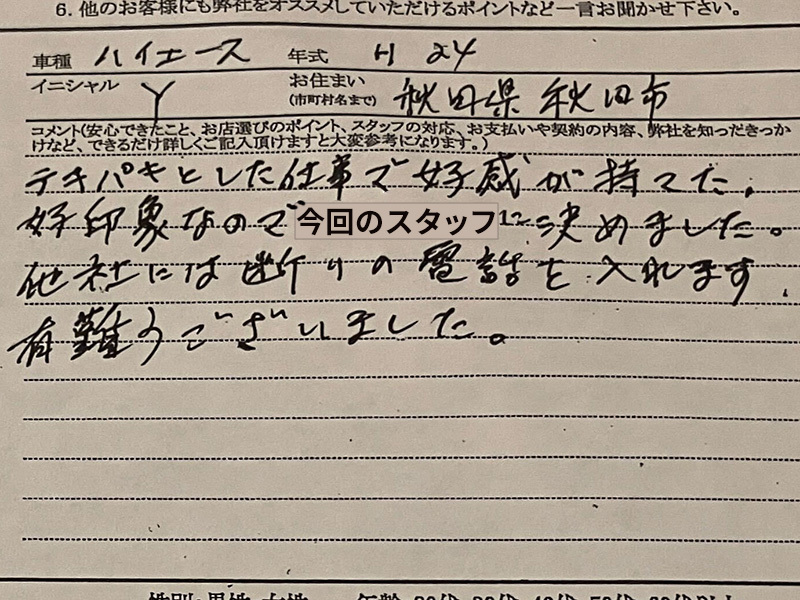 6. 他のお客様にも弊社をオススメしていただけるポイントなど一言お聞かせ下さい。
車種 ハイエース 年式 H 24
イニシャル Y お住まい(市町村名まで) 秋田県 秋田市
コメント(安心できたこと、お店選びのポイント、スタッフの対応、お支払いや契約の内容、弊社を知っだきっか
けなど、できるだけ詳しくご記入頂けますと大変参考になります。)
テキパキとした仕事で好感が持てた。
好印象なので今回のスタッフに決めました。
他社には断りの電話を入れます。
有難うございました。